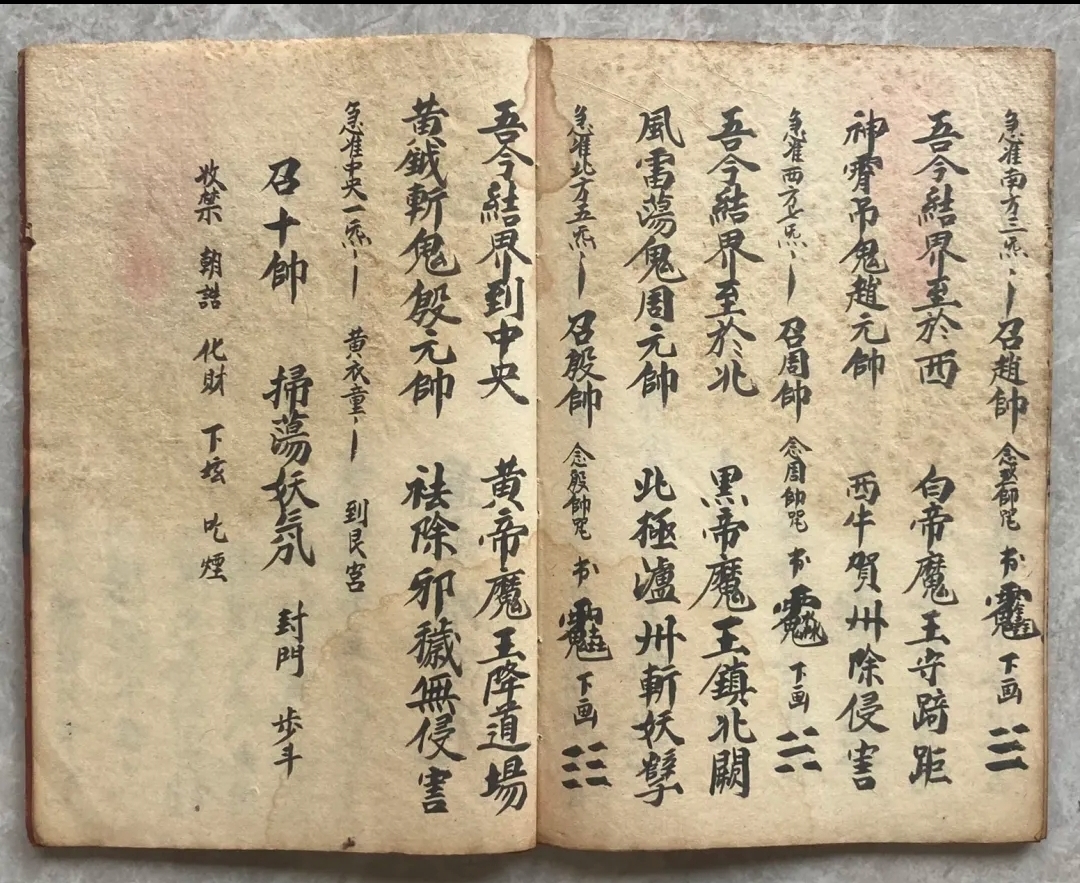 急准南方三炁丶丨召趙帥 念趙帥咒 书 下画
吾今結界至於西 白帝魔王守踦距
神霄吊鬼趙元帥 西牛賀州除侵害
急准西方七炁丶丨 召周帥 念周帥咒 书 下画
吾今結界至於北 黑帝魔王鎮北闕
風雷蕩鬼周元帥 北極瀘州斬妖孽
急准北方五炁丶丨 召殷帥 念殷帥咒 书 下画
吾今結界到中央 黄帝魔王降道場
黄鉞斬鬼殷元帥 祛除邪穢無侵害
急准中央一炁丶丨 黄衣童丶丨 到艮宮
召十帥 掃蕩妖氛 封門 步斗
收禁 朝誥 化財 下坛 吃煙